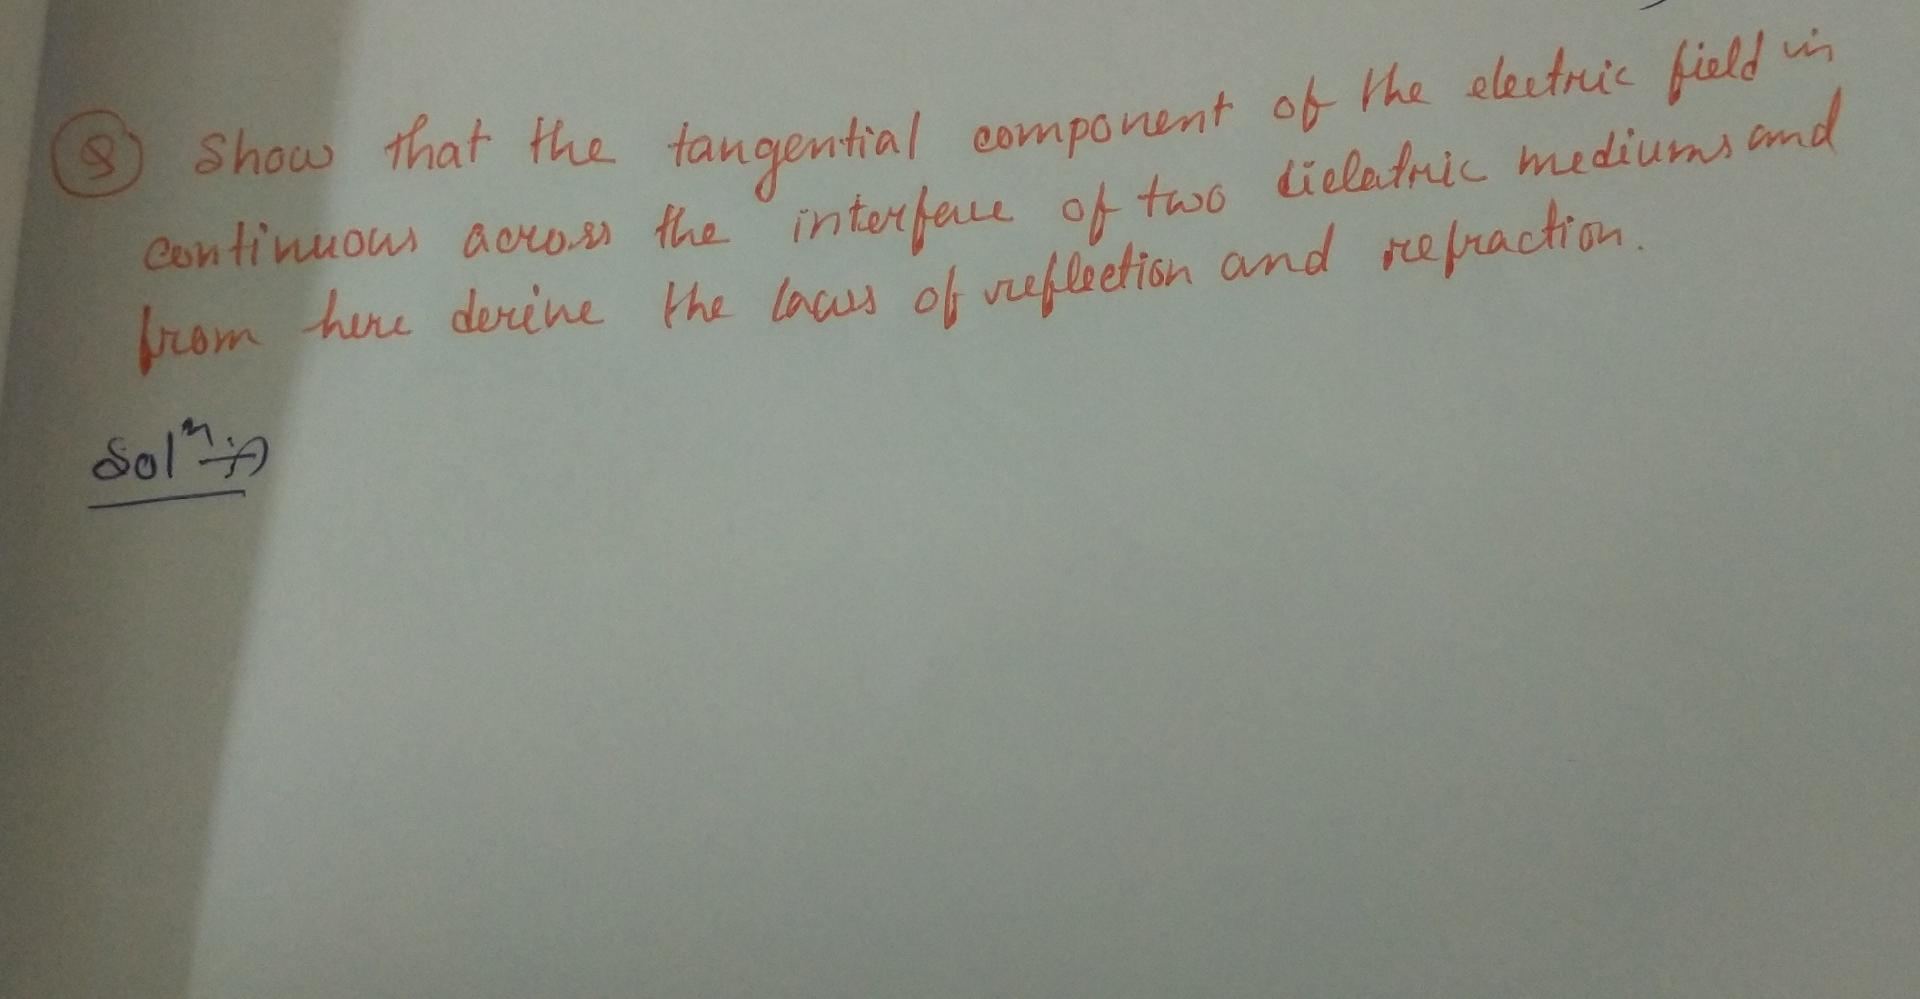 Q Show that the tangential component of the electric field in
continuous across the interface of two dielectric mediums and
from here derive the laws of reflection and refraction.
Solⁿ :⇒